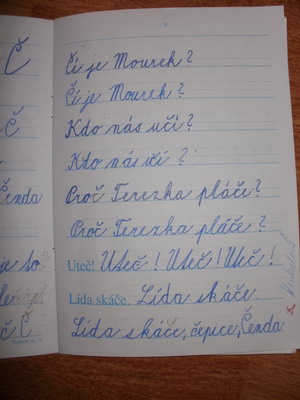 Č
Čí je Mourek?
Čí je Mourek?
Č
Kdo nás učí?
Kdo nás učí ?
Čenda
Proč Terezka pláče?
Proč Terezka pláče ?
je to
Uteč! Uteč! Uteč! Uteč!
Lída skáče. Lída skáče.
č Č
Lída skáče, čepice, Čenda